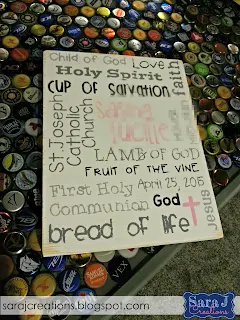 Child of God Love
Holy Spirit
faith
cup of salvation
St. Joseph
Catholic
Church
Lamb of God
fruit of the vine
First Holy April 25, 2015
Communion God
Jesus
bread of life
sarajcreations.blogspot.com
Sara J
Creations